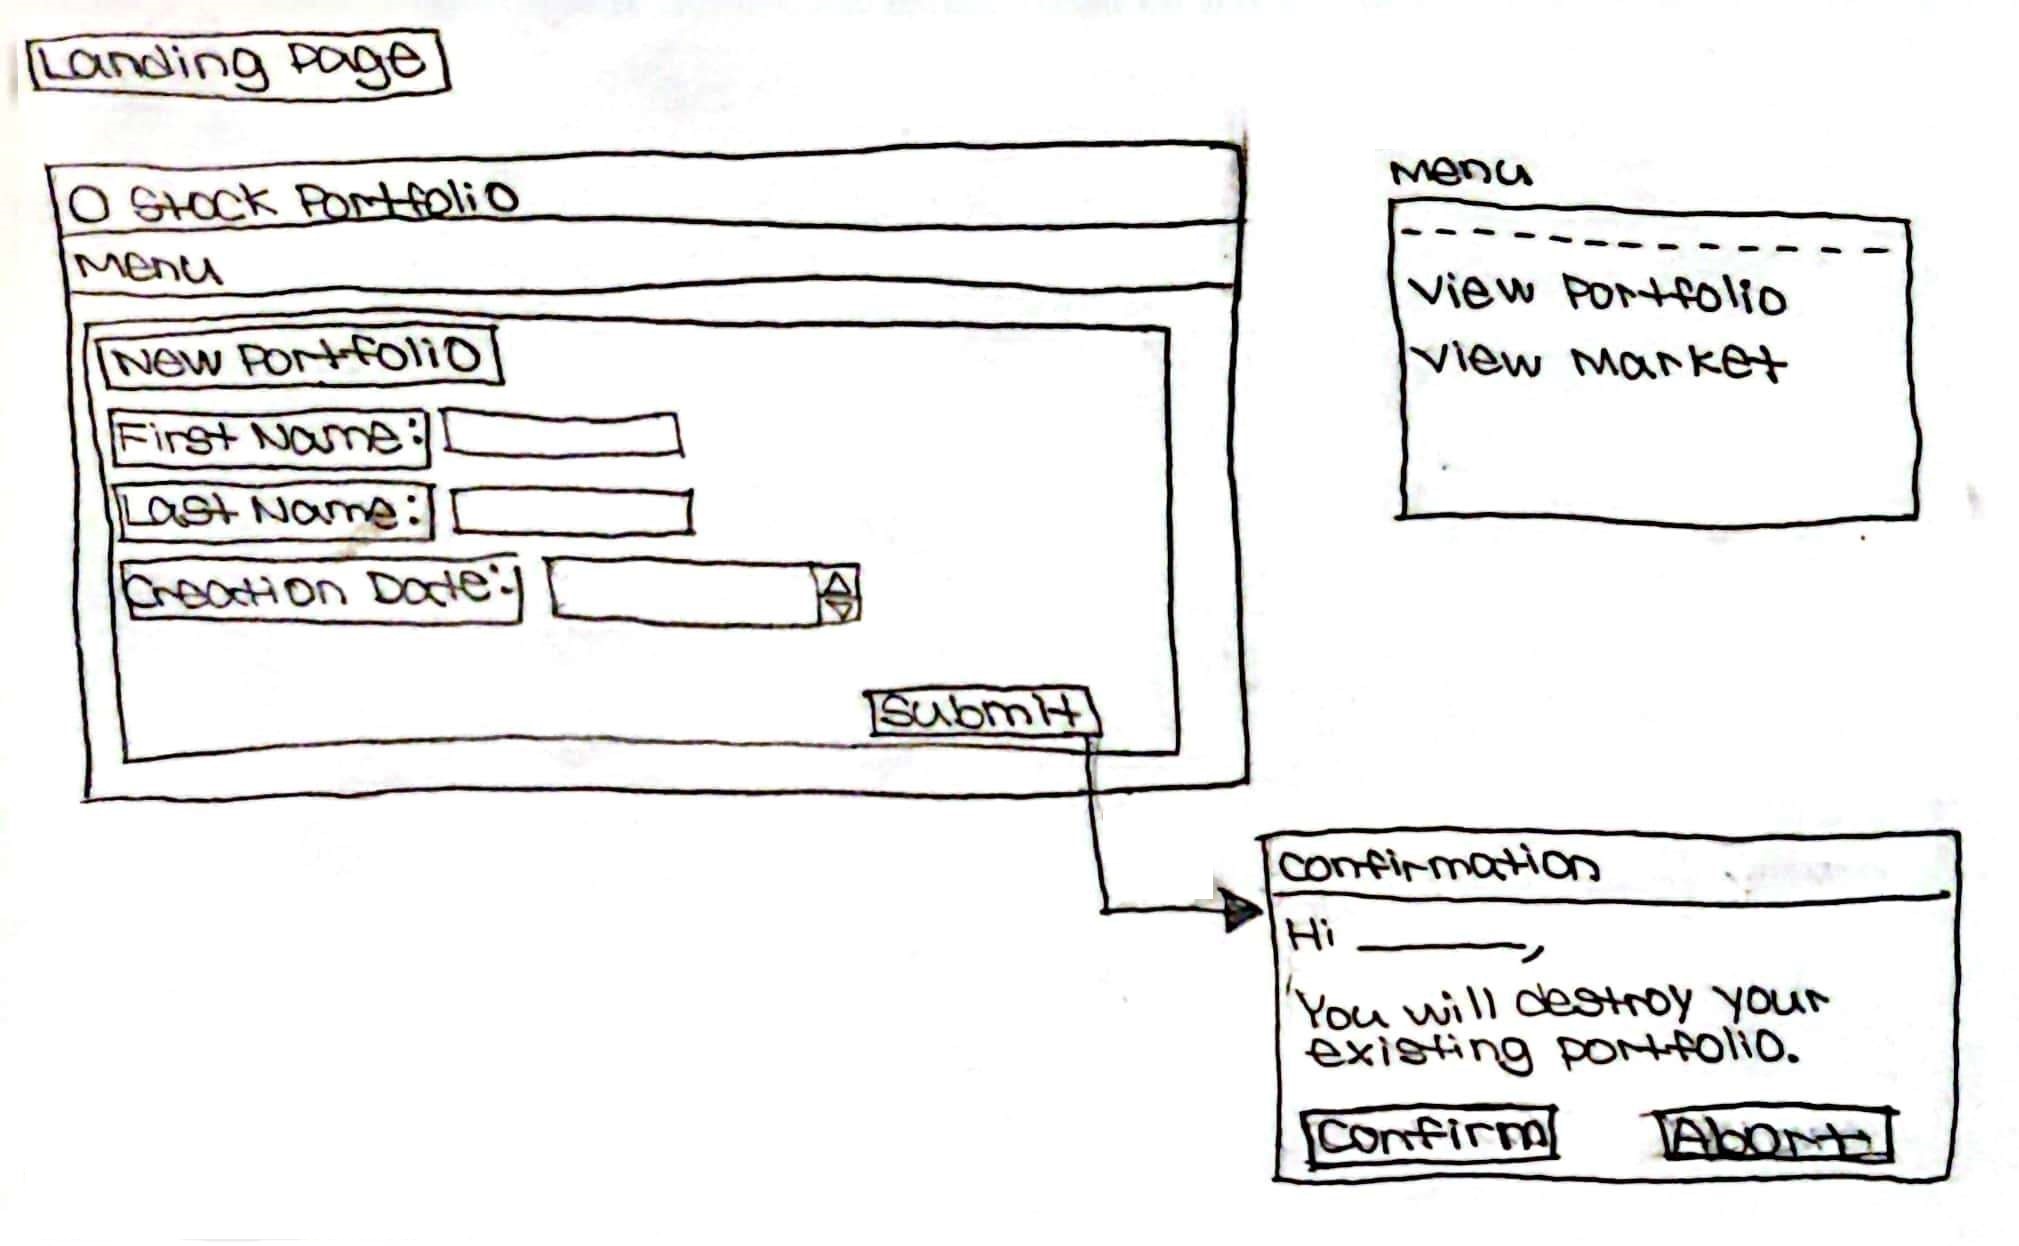 Landing Page
Stock Portfolio
Menu
New Portfolio
First Name:
Last Name:
Creation Date:
Submit
Menu
View Portfolio
View Market
Confirmation
Hi ________,
You will destroy your
existing portfolio.
Confirm
Abort